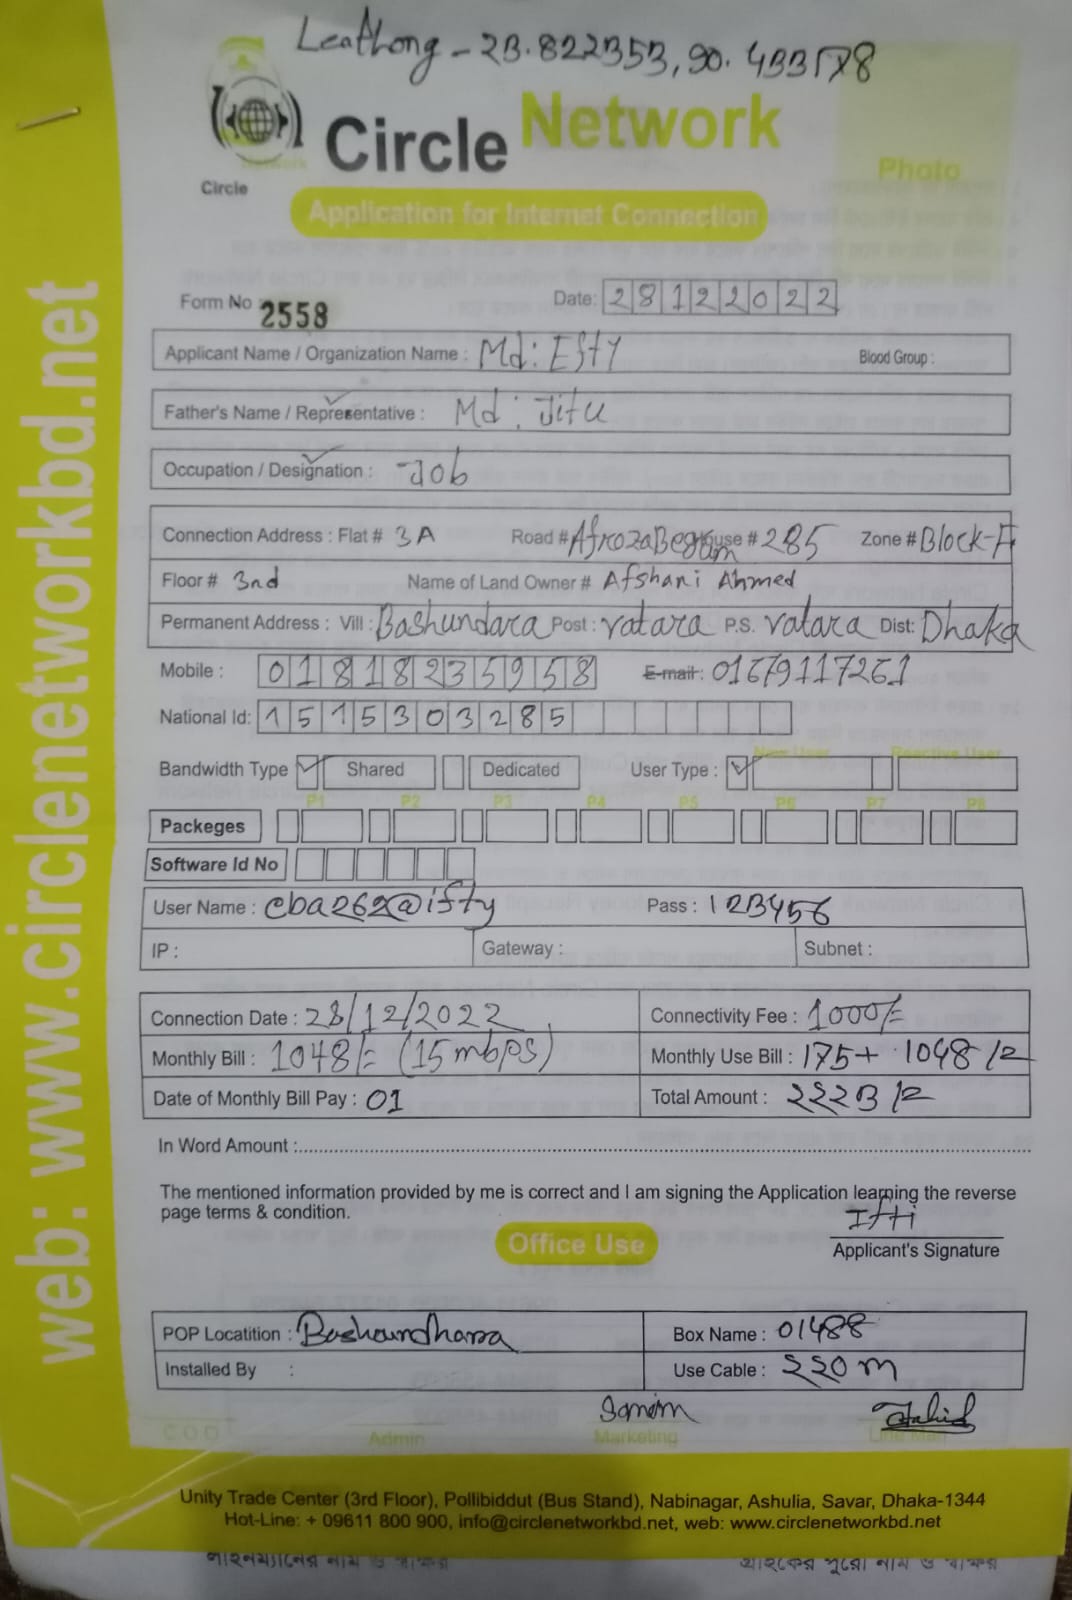 Leathong - 23.822353, 90.433578
Circle Network
Circle
Photo
Application for Internet Connection
Form No 2558
Date: 28122022
Applicant Name / Organization Name : Md: Efty Blood Group :
Father's Name / Representative : Md: Jitu
Occupation / Designation : Job
Connection Address : Flat # 3A Road # Afroza Begum House # 285 Zone # Block-F
Floor # 3nd Name of Land Owner # Afshani Ahmed
Permanent Address : Vill : Bashundara Post : vatara P.S. vatara Dist: Dhaka
Mobile : 01818235958 E-mail : 01679117261
National Id: 1515303285
New User Reactive User
Bandwidth Type Shared Dedicated User Type :
P1 P2 P3 P4 P5 P6 P7 P8
Packeges
Software Id No
User Name : cba262@ifty Pass : 123456
IP : Gateway : Subnet :
Connection Date : 28/12/2022 Connectivity Fee : 1000/=
Monthly Bill : 1048/= (15 mbps) Monthly Use Bill : 175+ 1048/=
Date of Monthly Bill Pay : 01 Total Amount : 2223/=
In Word Amount :
The mentioned information provided by me is correct and I am signing the Application learning the reverse
page terms & condition.
Ifti
Office Use
Applicant's Signature
POP Locatition : Boshoundhara Box Name : 01488
Installed By : Use Cable : 220m
Jahid
COD Admin Marketing Line Man
Unity Trade Center (3rd Floor), Pollibiddut (Bus Stand), Nabinagar, Ashulia, Savar, Dhaka-1344
Hot-Line: + 09611 800 900, info@circlenetworkbd.net, web: www.circlenetworkbd.net
লাইনম্যানের নাম ও স্বাক্ষর গ্রাহকের পুরো নাম ও স্বাক্ষর
web: www.circlenetworkbd.net